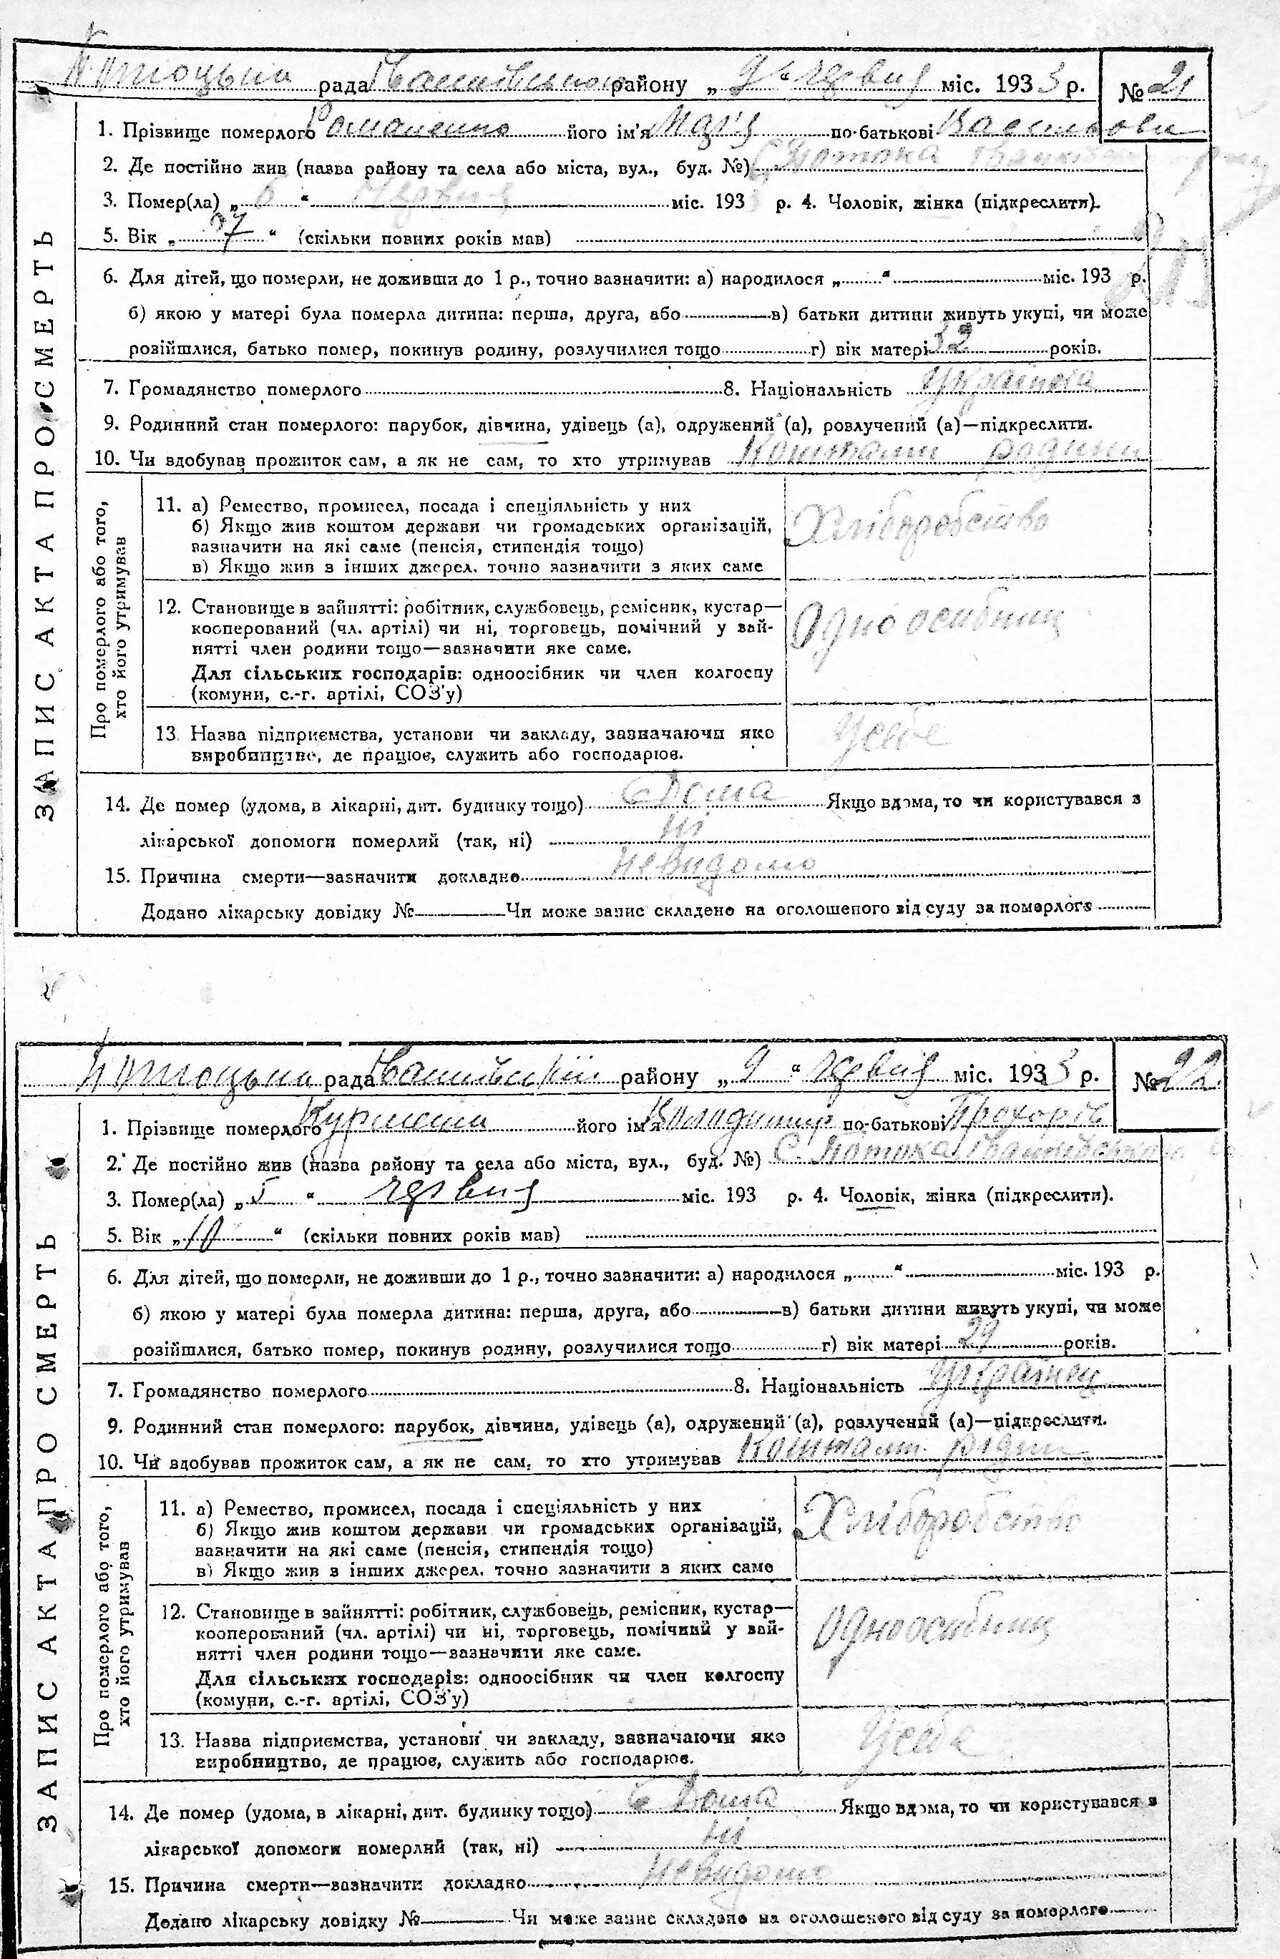 рада району „ 9 “ червня міс. 1933 р. № 21
1. Прізвище померлого Романенко його ім'я Марія по-батькові Васильовн
2. Де постійно жив (назва району та села або міста, вул., буд. №) С. Потока
3. Помер(ла) „ 6 “ червня міс. 193 р. 4. Чоловік, жінка (підкреслити).
5. Вік „ “ (скільки повних років мав)
6. Для дітей, що померли, не доживши до 1 р., точно зазначити: а) народилося „ “ міс. 193 р.
б) якою у матері була померла дитина: перша, друга, або в) батьки дитини живуть укупі, чи може
розійшлися, батько помер, покинув родину, розлучилися тощо г) вік матері 32 років.
7. Громадянство померлого 8. Національність Українка
9. Родинний стан померлого: парубок, дівчина, удівець (а), одружений (а), розлучений (а)—підкреслити.
10. Чи здобував прожиток сам, а як не сам, то хто утримував Коштами родини
ЗАПИС АКТА ПРО СМЕРТЬ
Про померлого або того, хто його утримував
11. а) Ремество, промисел, посада і спеціяльність у них
б) Якщо жив коштом держави чи громадських організацій,
зазначити на які саме (пенсія, стипендія тощо)
в) Якщо жив з інших джерел, точно зазначити з яких саме
Хліборобство
12. Становище в зайнятті: робітник, службовець, ремісник, кустар—
кооперований (чл. артілі) чи ні, торговець, помічний у зай-
нятті член родини тощо—зазначити яке саме.
Для сільських господарів: одноосібник чи член колгоспу
(комуни, с.-г. артілі, СОЗ'у)
Одноосибник
13. Назва підприємства, установи чи закладу, зазначаючи яке
виробництво, де працює, служить або господарює.
Усебе
14. Де помер (удома, в лікарні, дит. будинку тощо) Дома Якщо вдома, то чи користувався з
лікарської допомоги померлий (так, ні) ні
15. Причина смерти—зазначити докладно невидомо
Додано лікарську довідку № Чи може запис складено на оголошеного від суду за померлого
рада району „ 9 “ червня міс. 1933 р. № 22
1. Прізвище померлого його ім'я Володимир по-батькові Прохорів
2. Де постійно жив (назва району та села або міста, вул., буд. №) С. Потока
3. Помер(ла) „ 5 “ червня міс. 193 р. 4. Чоловік, жінка (підкреслити).
5. Вік „ 10 “ (скільки повних років мав)
6. Для дітей, що померли, не доживши до 1 р., точно зазначити: а) народилося „ “ міс. 193 р.
б) якою у матері була померла дитина: перша, друга, або в) батьки дитини живуть укупі, чи може
розійшлися, батько помер, покинув родину, розлучилися тощо г) вік матері 29 років.
7. Громадянство померлого 8. Національність Українец
9. Родинний стан померлого: парубок, дівчина, удівець (а), одружений (а), розлучений (а)—підкреслити.
10. Чи здобував прожиток сам, а як не сам, то хто утримував Коштами родин
ЗАПИС АКТА ПРО СМЕРТЬ
Про померлого або того, хто його утримував
11. а) Ремество, промисел, посада і спеціяльність у них
б) Якщо жив коштом держави чи громадських організацій,
зазначити на які саме (пенсія, стипендія тощо)
в) Якщо жив з інших джерел, точно зазначити з яких саме
Хліборобство
12. Становище в зайнятті: робітник, службовець, ремісник, кустар—
кооперований (чл. артілі) чи ні, торговець, помічний у зай-
нятті член родини тощо—зазначити яке саме.
Для сільських господарів: одноосібник чи член колгоспу
(комуни, с.-г. артілі, СОЗ'у)
Одноосибник
13. Назва підприємства, установи чи закладу, зазначаючи яке
виробництво, де працює, служить або господарює.
Усебе
14. Де помер (удома, в лікарні, дит. будинку тощо) Дома Якщо вдома, то чи користувався з
лікарської допомоги померлий (так, ні) ні
15. Причина смерти—зазначити докладно Невидомо
Додано лікарську довідку № Чи може запис складено на оголошеного від суду за померлого